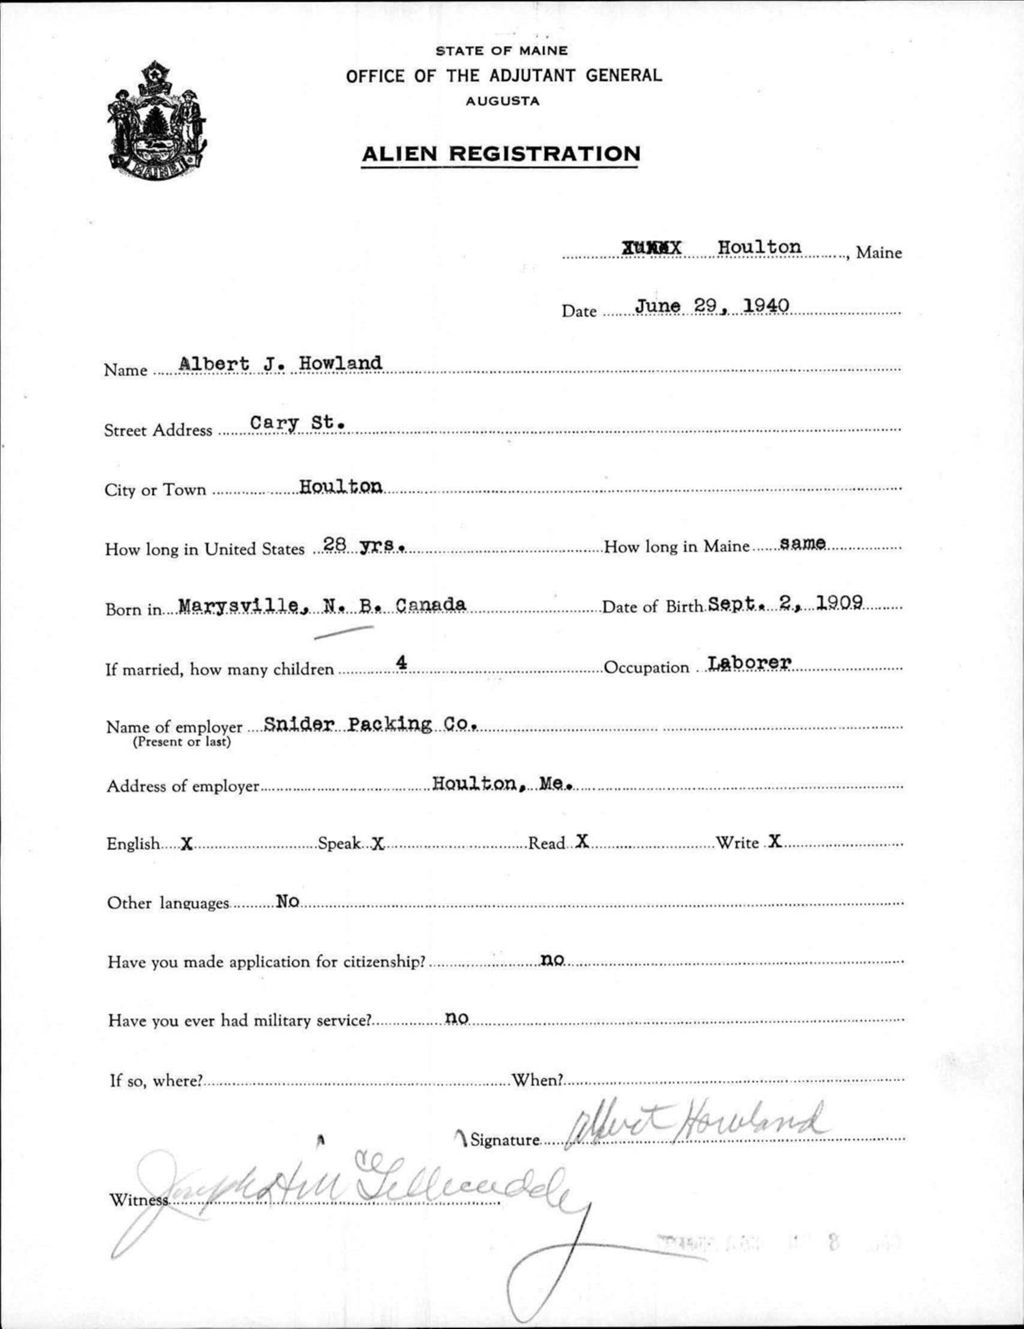 STATE OF MAINE
OFFICE OF THE ADJUTANT GENERAL
AUGUSTA
ALIEN REGISTRATION
MAINE
Houlton, Maine
Date June 29, 1940
Name Albert J. Howland
Street Address Cary St.
City or Town Houlton
How long in United States 28 yrs. How long in Maine same
Born in Marysville, N. B. Canada Date of Birth Sept. 2, 1909
If married, how many children 4 Occupation Laborer
Name of employer Snider Packing Co.
(Present or last)
Address of employer Houlton, Me.
English X Speak X Read X Write X
Other languages No
Have you made application for citizenship? no
Have you ever had military service? no
If so, where? When?
Signature Albert Howland
Witness Joseph